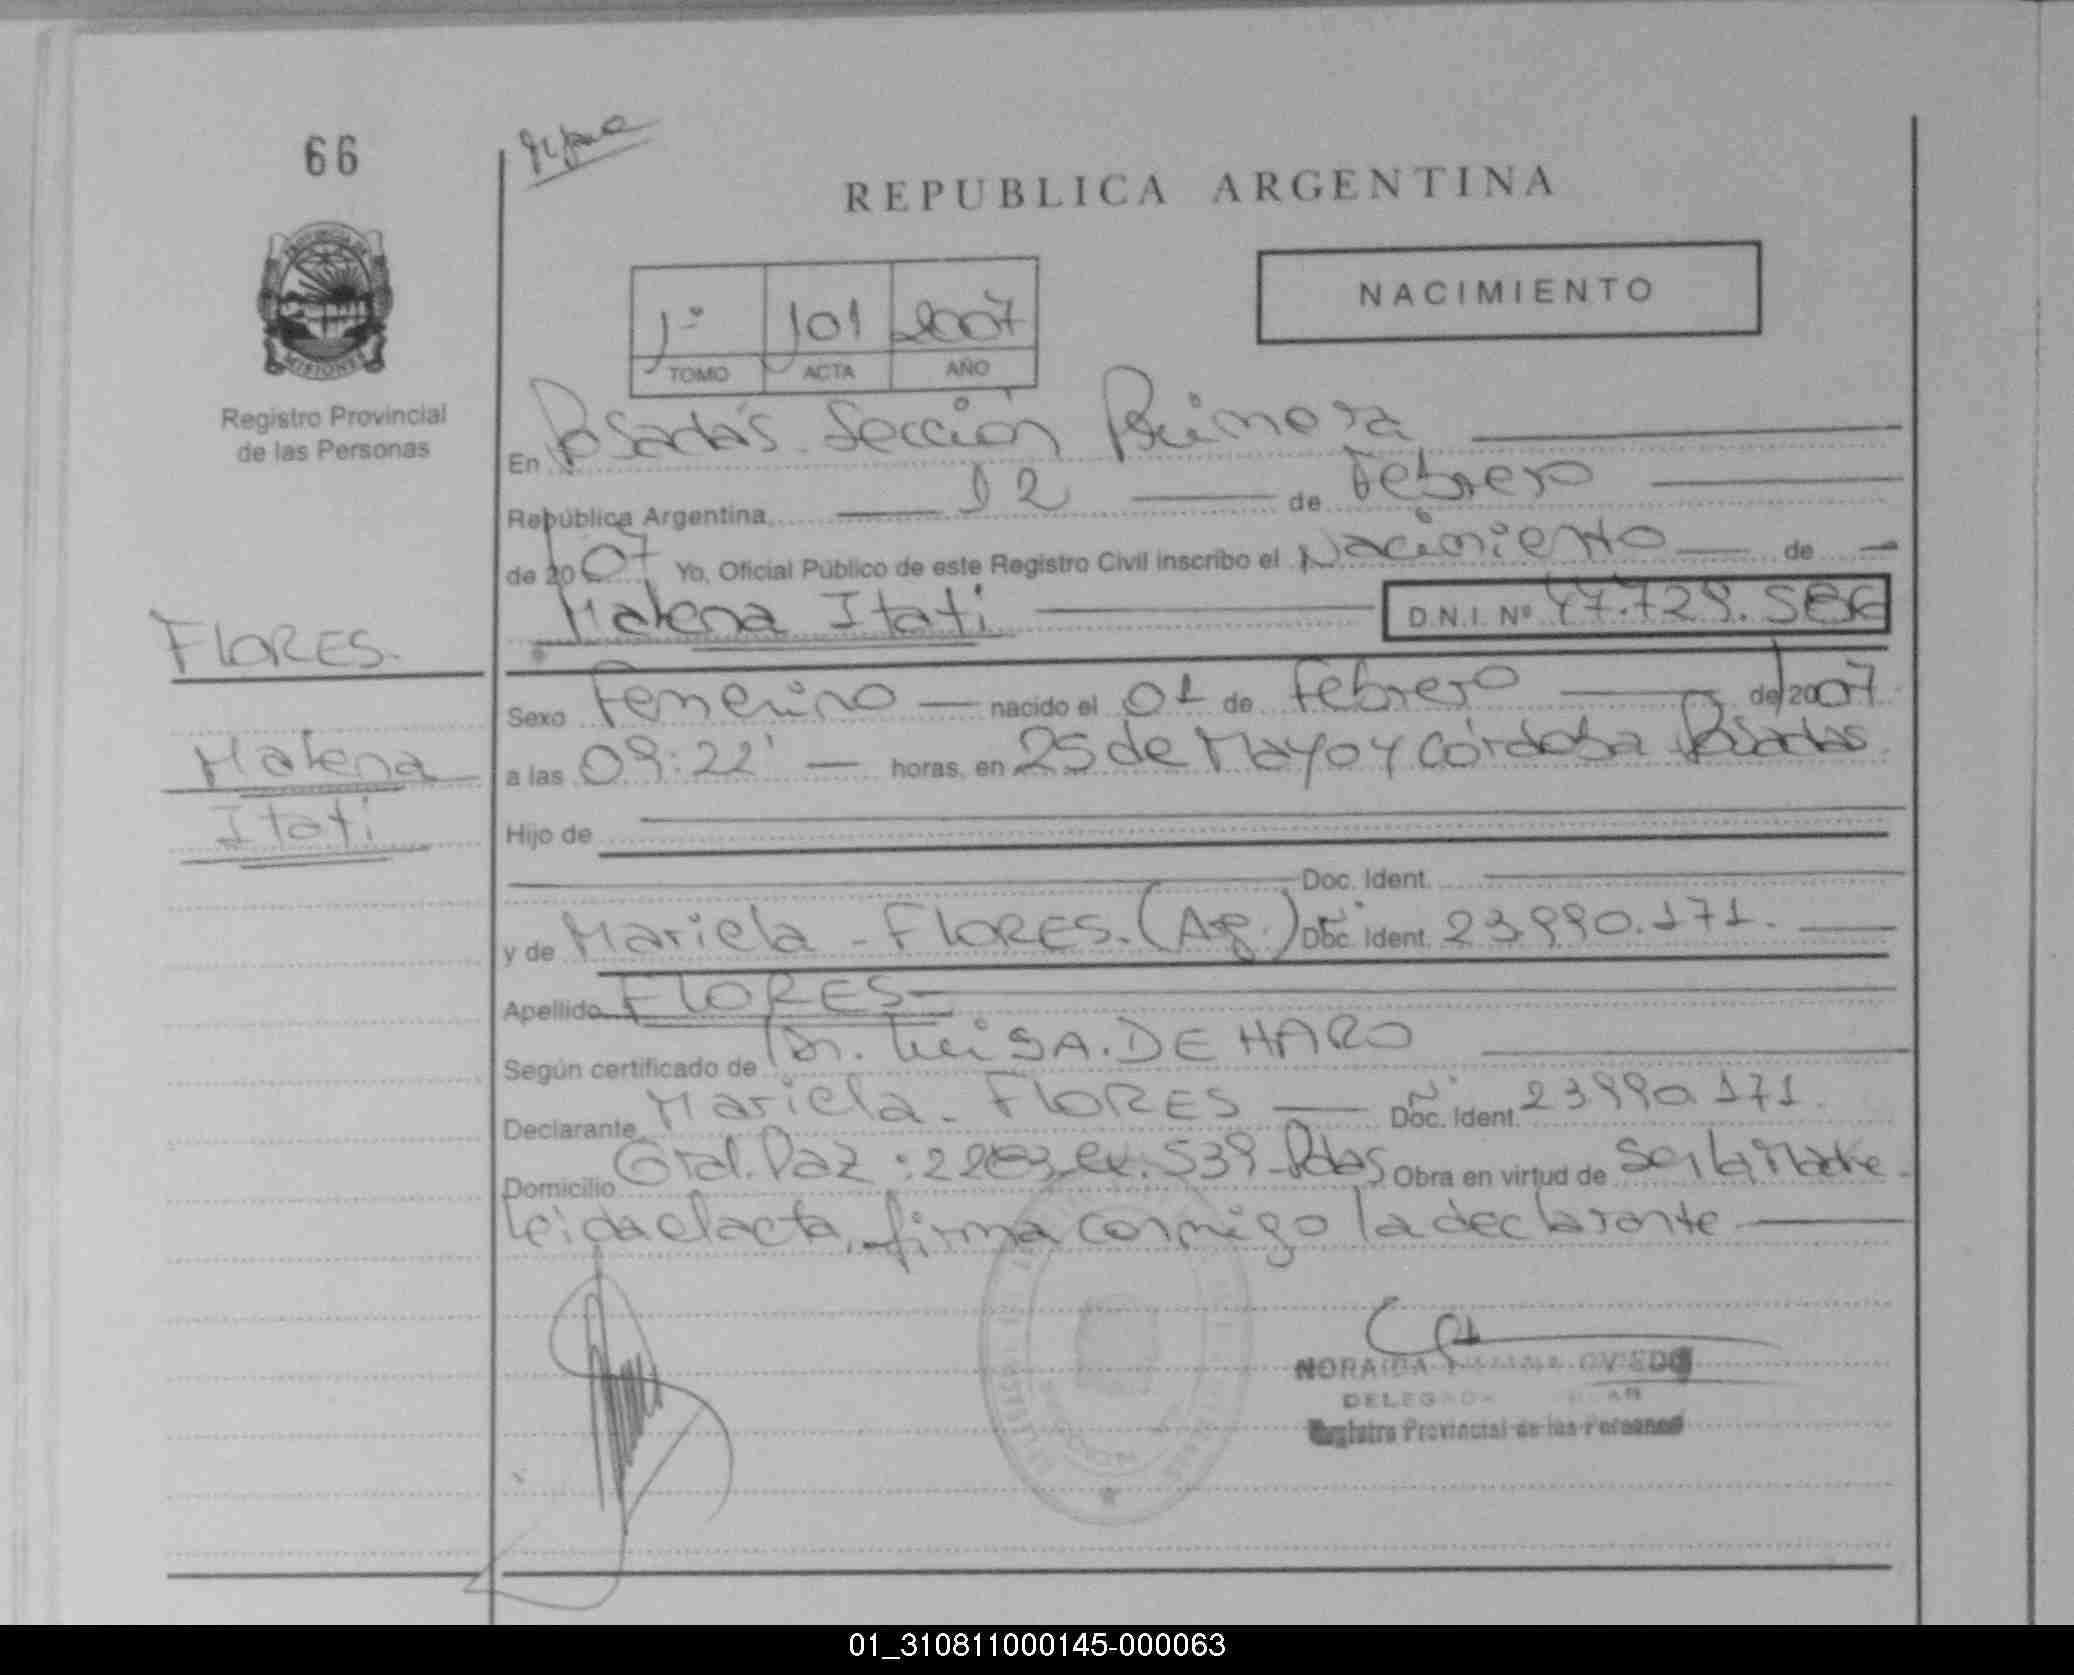 66
REPUBLICA ARGENTINA
PROVINCIA DE
MISIONES
Registro Provincial
de las Personas
1º 101 2007
TOMO ACTA AÑO
NACIMIENTO
En Posadas Sección Primera
República Argentina, 12 de Febrero
de 2007 Yo, Oficial Público de este Registro Civil inscribo el Nacimiento de
Malena Itati D.N.I. Nº 47.729.
FLORES.
Malena
Itati
Sexo Femenino nacido el 01 de Febrero de 2007
a las 09:22' horas, en 25 de Mayo y Córdoba Posadas
Hijo de
Doc. Ident.
y de Mariela - FLORES. (Ag.) Doc. Ident. Nº 23.990.171.
Apellido FLORES
Según certificado de Dr. Luis A. DE HARO
Declarante Mariela - FLORES Doc. Ident. Nº 23990171.
Domicilio Gral. Paz: ex. 539 Pdas Obra en virtud de Ser la Madre
leida el acta, firma conmigo la declarante
NORAIDA OVIEDO
DELEGADA
Registro Provincial de las Personas
01_310811000145-000063